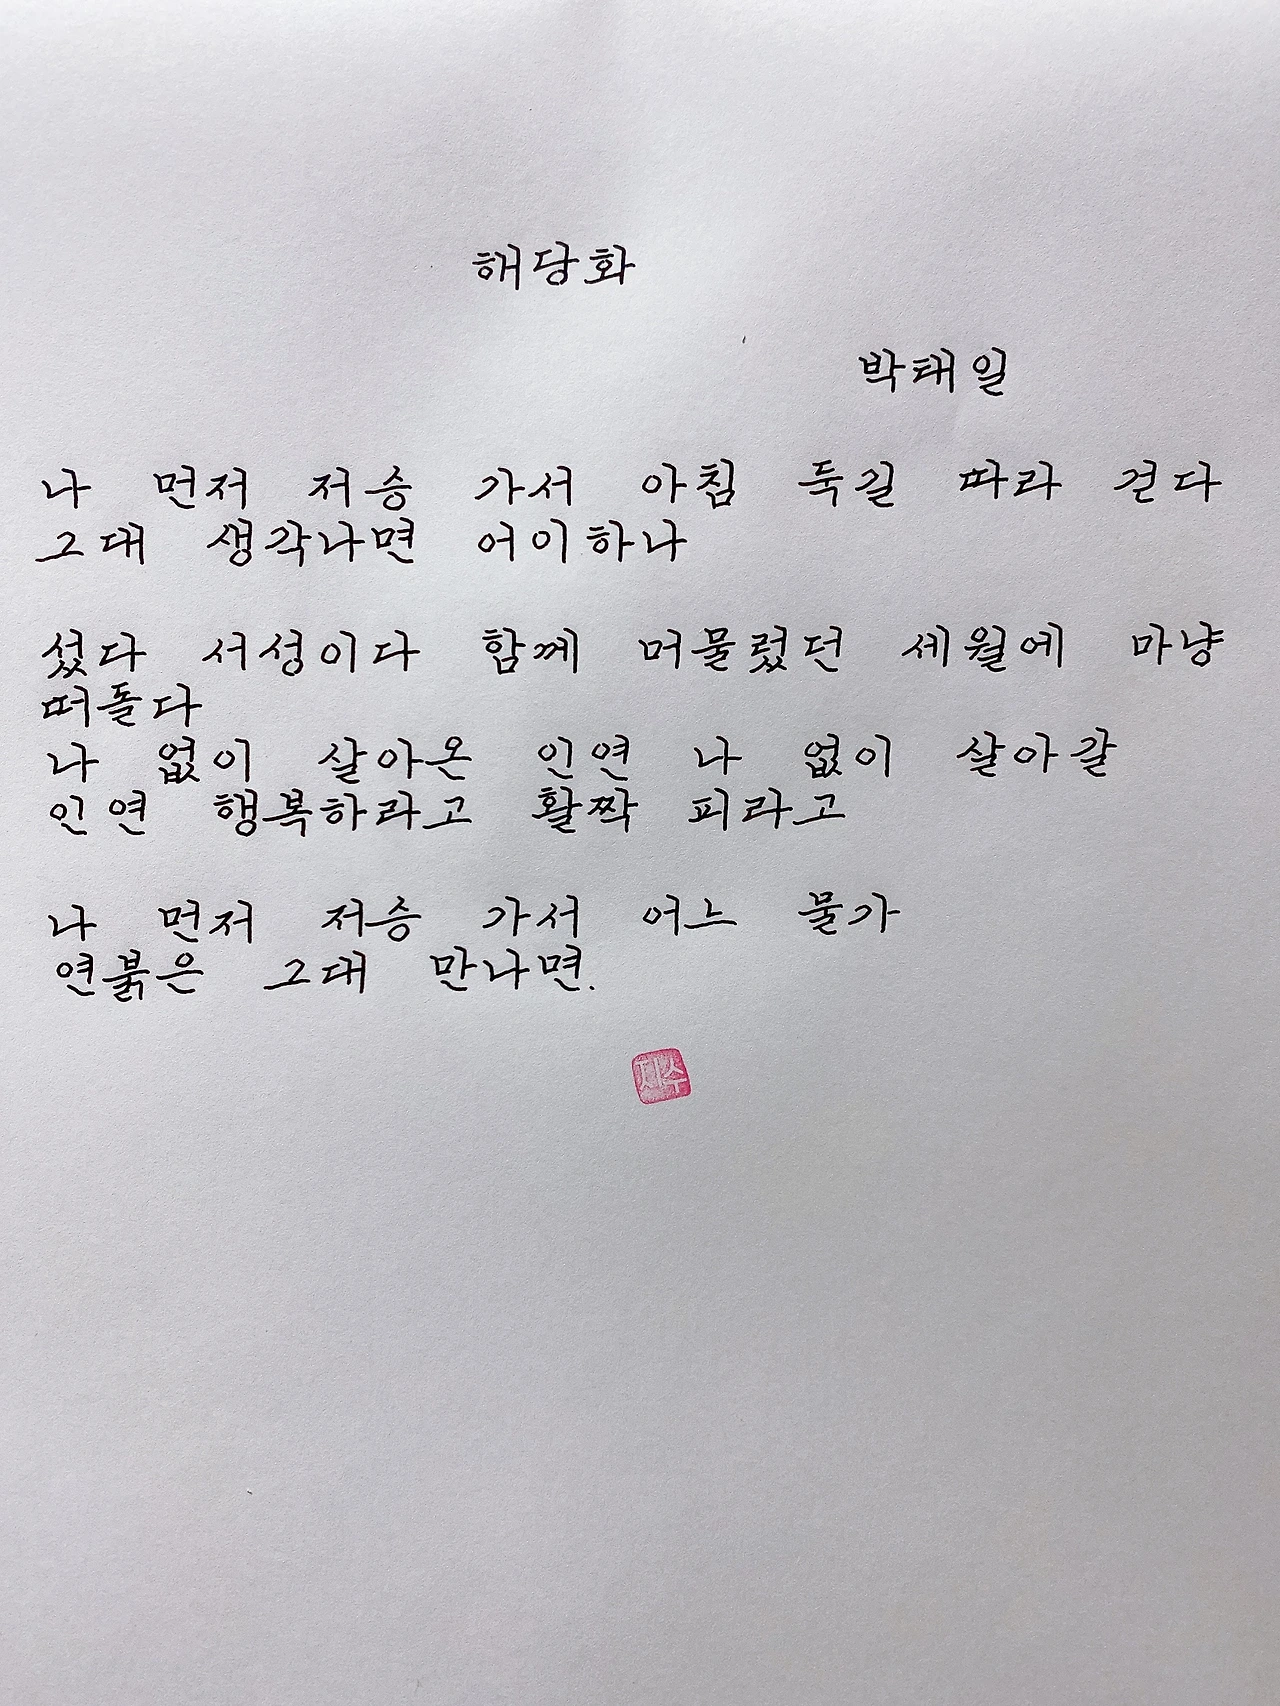 해당화
박태일
나 먼저 저승 가서 아침 둑길 따라 걷다
그대 생각나면 어이하나
섰다 서성이다 함께 머물렀던 세월에 마냥
떠돌다
나 없이 살아온 인연 나 없이 살아갈
인연 행복하라고 활짝 피라고
나 먼저 저승 가서 어느 물가
연붉은 그대 만나면.
지수